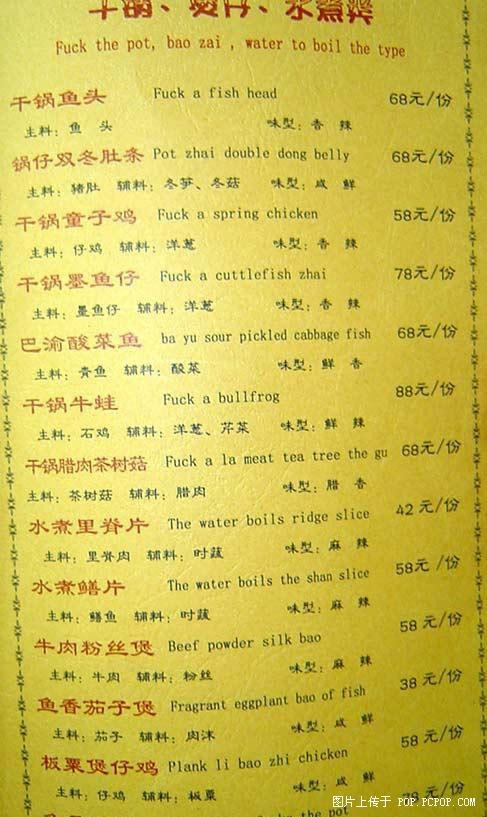 干锅、煲仔、水煮类
Fuck the pot, bao zai , water to boil the type
干锅鱼头 Fuck a fish head 68元/份
主料：鱼 头 味型：香 辣
锅仔双冬肚条 Pot zhai double dong belly 68元/份
主料：猪肚 辅料：冬笋、冬菇 味型：咸 鲜
干锅童子鸡 Fuck a spring chicken 58元/份
主料：仔鸡 辅料：洋葱 味型：香 辣
干锅墨鱼仔 Fuck a cuttlefish zhai 78元/份
主料：墨鱼仔 辅料：洋葱 味型：香 辣
巴渝酸菜鱼 ba yu sour pickled cabbage fish 68元/份
主料：青鱼 辅料：酸菜 味型：鲜 香
干锅牛蛙 Fuck a bullfrog 88元/份
主料：石鸡 辅料：洋葱、芹菜 味型：鲜 辣
干锅腊肉茶树菇 Fuck a la meat tea tree the gu 68元/份
主料：茶树菇 辅料：腊肉 味型：腊 香
水煮里脊片 The water boils ridge slice 42元/份
主料：里脊肉 辅料：时蔬 味型：麻 辣
水煮鳝片 The water boils the shan slice 58元/份
主料：鳝鱼 辅料：时蔬 味型：麻 辣
牛肉粉丝煲 Beef powder silk bao 58元/份
主料：牛肉 辅料：粉丝 味型：麻 辣
鱼香茄子煲 Fragrant eggplant bao of fish 38元/份
主料：茄子 辅料：肉沫 味型：咸 鲜
板栗煲仔鸡 Plank li bao zhi chicken 58元/份
主料：仔鸡 辅料：板栗 味型：咸 鲜
the pot 78元/份
图片上传于 POP.PCPOP.COM